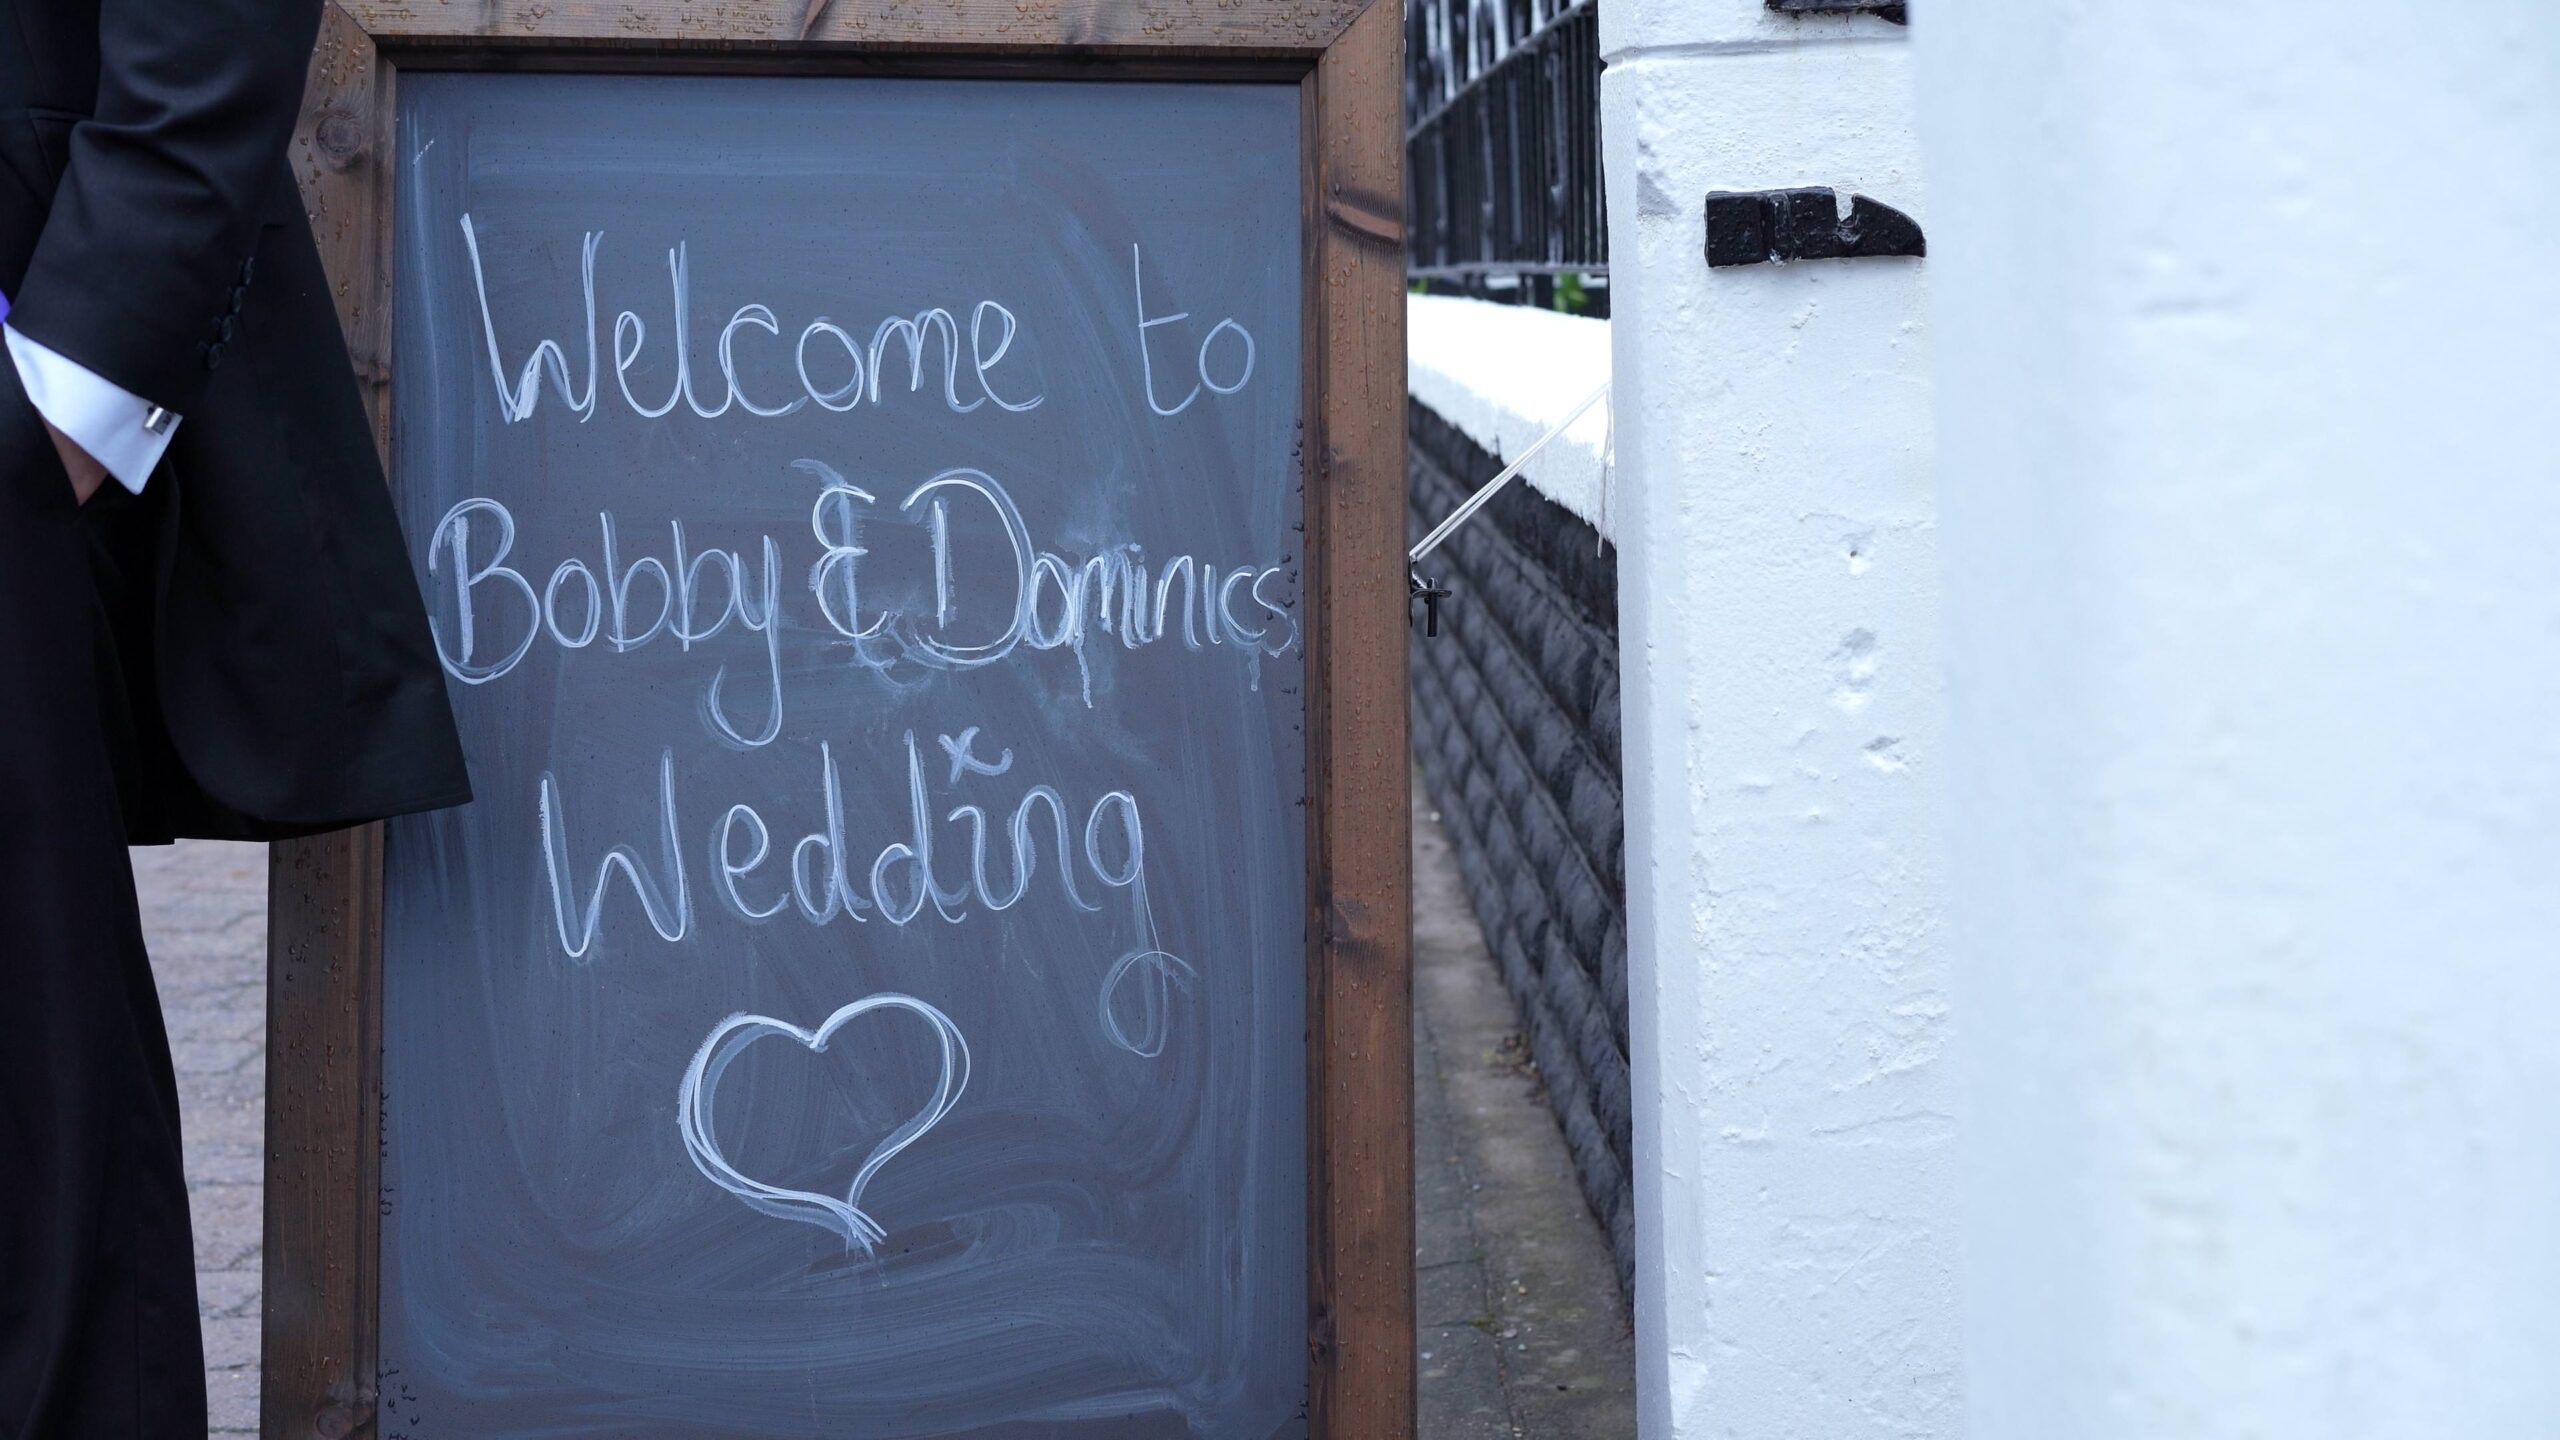 Welcome to
Bobby & Dominics
Wedding